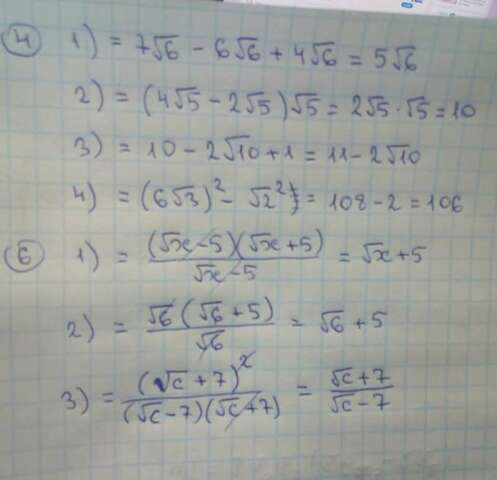 ④ 1) = 7√6 - 6√6 + 4√6 = 5√6
2) = (4√5 - 2√5)√5 = 2√5·√5 = 10
3) = 10 - 2√10 + 1 = 11 - 2√10
4) = (6√3)² - √2² = 108 - 2 = 106
⑥ 1) = (√x - 5)(√x + 5) / √x - 5 = √x + 5
2) = √6(√6 + 5) / √6 = √6 + 5
3) = (√c + 7)² / (√c - 7)(√c + 7) = √c + 7 / √c - 7